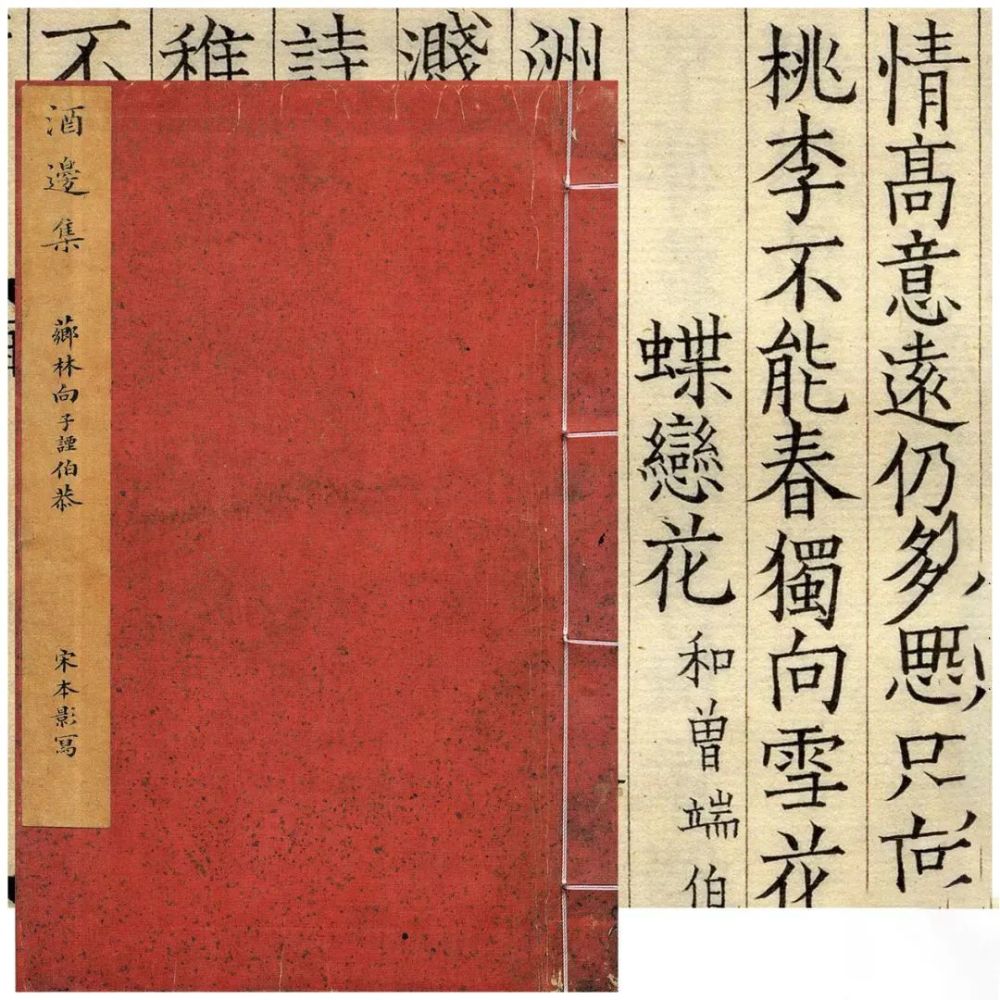 情髙意遠仍多思只
桃李不能春獨向雪花
蝶戀花 和曾端伯
洲
濺
詩
稚
不
酒邊集 薌林向子諲伯恭 宋本影寫